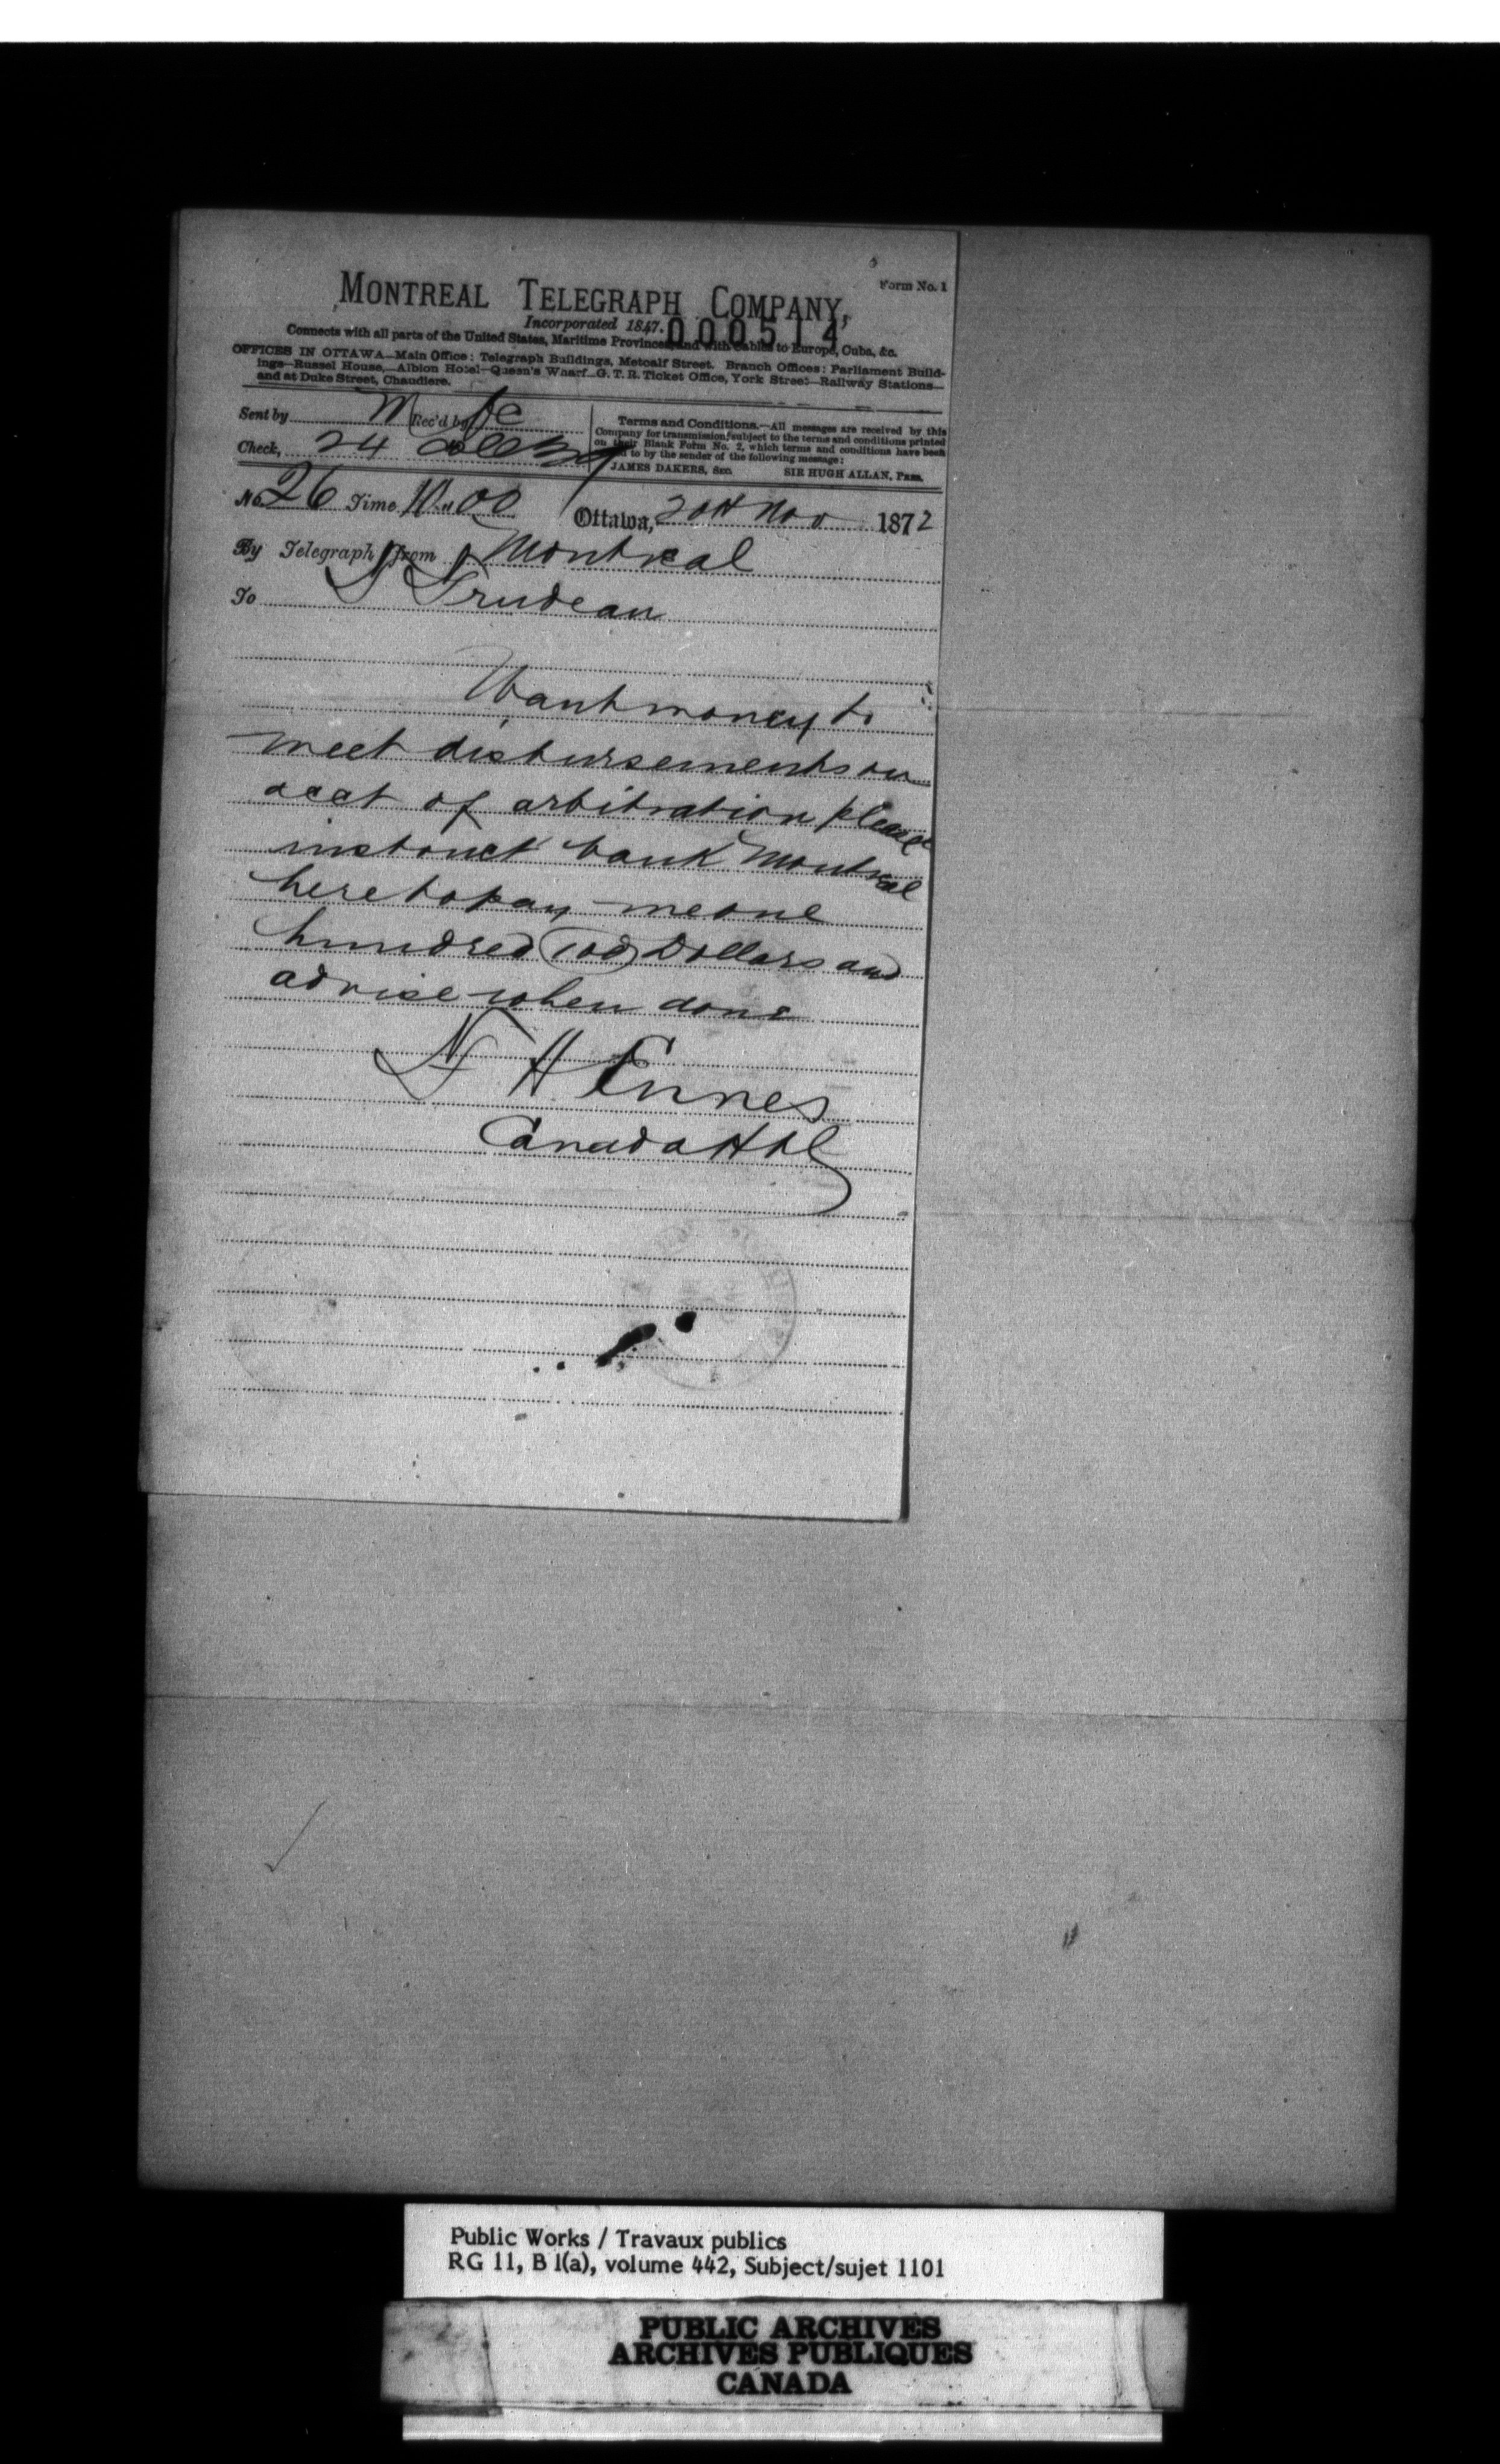 Form No. 1
MONTREAL TELEGRAPH COMPANY,
Incorporated 1847.
000514
Connects with all parts of the United States, Maritime Provinces, and with Cables to Europe, Cuba, &c.
OFFICES IN OTTAWA—Main Office: Telegraph Buildings, Metcalf Street. Branch Offices: Parliament Build-
ings—Russel House,—Albion Hotel—Queen's Wharf—G. T. R. Ticket Office, York Street—Railway Stations—
and at Duke Street, Chaudiere.
Sent by M Rec'd by
Check, 24
Terms and Conditions.—All messages are received by this
Company for transmission, subject to the terms and conditions printed
on their Blank Form No. 2, which terms and conditions have been
to by the sender of the following message:
JAMES DAKERS, Sec. SIR HUGH ALLAN, Pres.
No. 26 Time 10 00 Ottawa, 20th Nov 1872
By Telegraph from Montreal
To Trudeau
Want money to
meet disbursements on
acct of arbitration please
instruct bank Montreal
here to pay me one
hundred 100 Dollars and
advise when done
H Ennes
Canada Htl
Public Works / Travaux publics
RG 11, B 1(a), volume 442, Subject/sujet 1101
PUBLIC ARCHIVES
ARCHIVES PUBLIQUES
CANADA